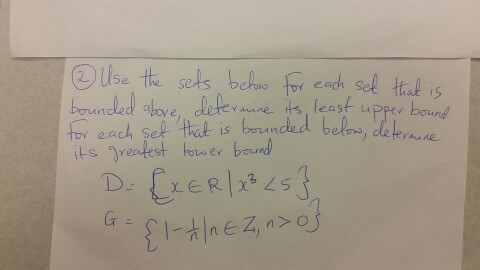 ② Use the sets below for each set that is
bounded above, determine its least upper bound
For each set that is bounded below, determine
its greatest lower bound
D = {x ∈ R | x³ < 5}
G = {1 - 1/n | n ∈ Z, n > 0}